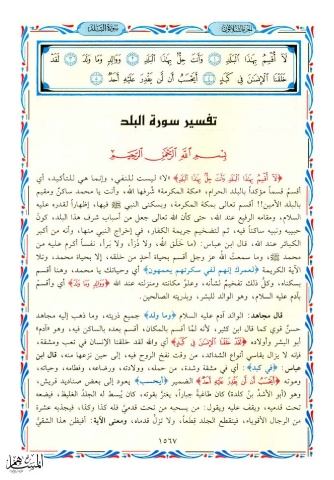 الجزء الثلاثون
سورة البلد
لَا أُقْسِمُ بِهَٰذَا الْبَلَدِ ۝ وَأَنتَ حِلٌّ بِهَٰذَا الْبَلَدِ ۝ وَوَالِدٍ وَمَا وَلَدَ ۝ لَقَدْ
خَلَقْنَا الْإِنسَانَ فِي كَبَدٍ ۝ أَيَحْسَبُ أَن لَّن يَقْدِرَ عَلَيْهِ أَحَدٌ ۝
تفسير سورة البلد
بسم الله الرحمن الرحيم
﴿لَا أُقْسِمُ بِهَٰذَا الْبَلَدِ وَأَنتَ حِلٌّ بِهَٰذَا الْبَلَدِ﴾ «لا» ليست للنفي، وإنما هي للتأكيد، أي
أقسم قسماً مؤكداً بالبلد الحرام، «مكة المكرمة» شرفها الله، وأنت يا محمد ساكن ومقيم
بالبلد الأمين!! أقسم تعالى بمكة المكرمة، وبسكنى النبي ﷺ فيها، إظهاراً لقدره عليه
السلام، ومقامه الرفيع عند الله، حتى كأن الله تعالى جعل من أسباب شرف هذا البلد، كون
حبيبه ونبيه ساكناً فيه، ثم لتضخيم جريمة الكفار، في إخراج النبي منها، وأنه من أكبر
الكبائر عند الله، قال ابن عباس: (ما خلق الله، ولا ذرأ، ولا برأ، نفساً أكرم عليه من
محمد ﷺ، وما سمعت الله عز وجل أقسم بحياة أحدٍ من خلقه، إلا بحياة محمد، وتلا
الآية الكريمة ﴿لعمرك إنهم لفي سكرتهم يعمهون﴾ أي وحياتك يا محمد، وهنا أقسم
بسكناه، وكل ذلك تفخيم لشأنه، وعلو مكانته ومنزلته عند الله ﴿وَوَالِدٍ وَمَا وَلَدَ﴾ أي وأقسم
بآدم عليه السلام، وهو الوالد للبشر، وبذريته الصالحين.
قال مجاهد: الوالد آدم عليه السلام ﴿وما ولد﴾ جميع ذريته، وما ذهب إليه مجاهد
حسن قوي كما قال ابن كثير، لأنه لما أقسم بالمكان، أقسم بعده بالساكن فيه، وهو «آدم»
أبو البشر وأولاده ﴿لَقَدْ خَلَقْنَا الْإِنسَانَ فِي كَبَدٍ﴾ أي والله لقد خلقنا الإنسان في تعب ومشقة،
فإنه لا يزال يقاسي أنواع الشدائد، من وقت نفخ الروح فيه، إلى حين نزعها منه، قال ابن
عباس: ﴿في كبد﴾: أي في مشقة وشدة، من حمله، وولادته، ورضاعه، وفطامه، وحياته،
وموته ﴿أَيَحْسَبُ أَن لَّن يَقْدِرَ عَلَيْهِ أَحَدٌ﴾ الضمير ﴿أيحسب﴾ يعود إلى بعض صناديد قريش،
وهو (أبو الأشد بن كلدة) كان طاغية جباراً، يغتر بقوته، كان يبسط له الجلد الغليظ، فيضعه
تحت قدميه، ويقف عليه ويقول: من يسحبه من تحت قدمي فله كذا وكذا، فيجذبه عشرة
من الرجال الأقوياء، فيتقطع الجلد قطعاً، ولا تزل قدماه، ومعنى الآية: أفيظن هذا الشقي
١٥٦٧